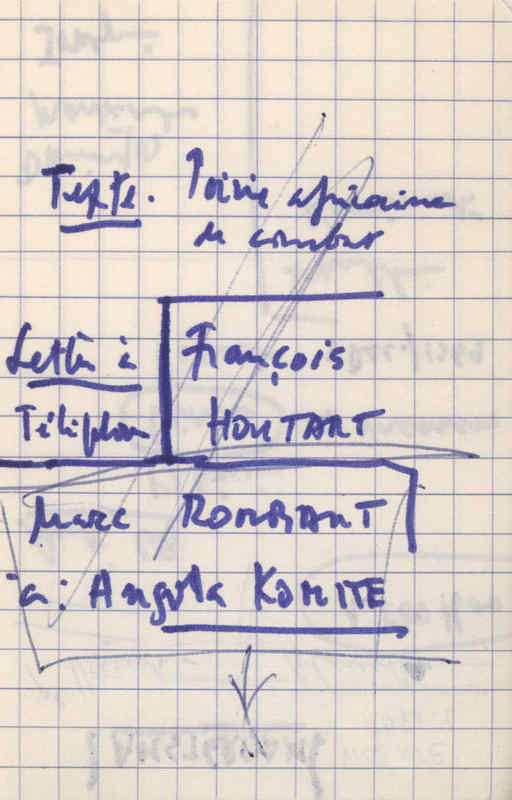 Texte. Poésie africaine
de combat
Lettre à François
Téléphone HOUTART
Marc ROMBAUT
à: Angola KOMITE